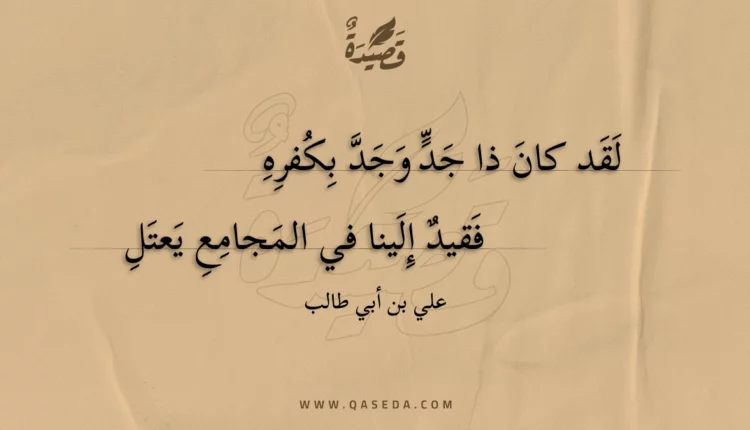 قَصِيْدَةٌ
لَقَد كانَ ذا جَدٍّ وَجَدَّ بِكُفرِهِ
فَقيدٌ إِلَينا في المَجامِعِ يَعتَلِ
علي بن أبي طالب
WWW.QASEDA.COM